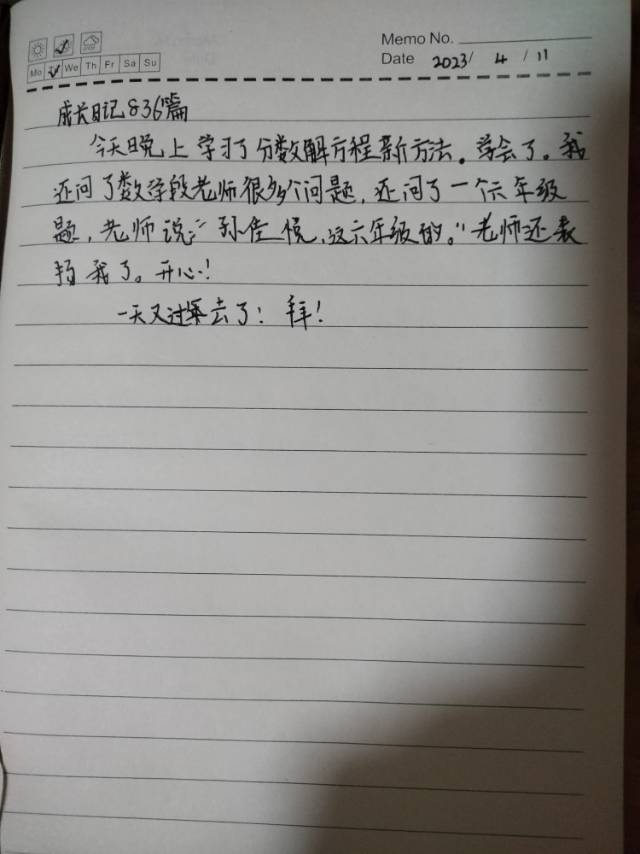 Memo No.
Date 2023/ 4 / 11
Mo We Th Fr Sa Su
成长日记836篇
今天晚上学习了分数解方程新方法。学会了。我
还问了数学段老师很多个问题，还问了一个六年级
题，老师说：“孙佳悦，这六年级的。”老师还表
扬我了。开心！
一天又过去了！拜！